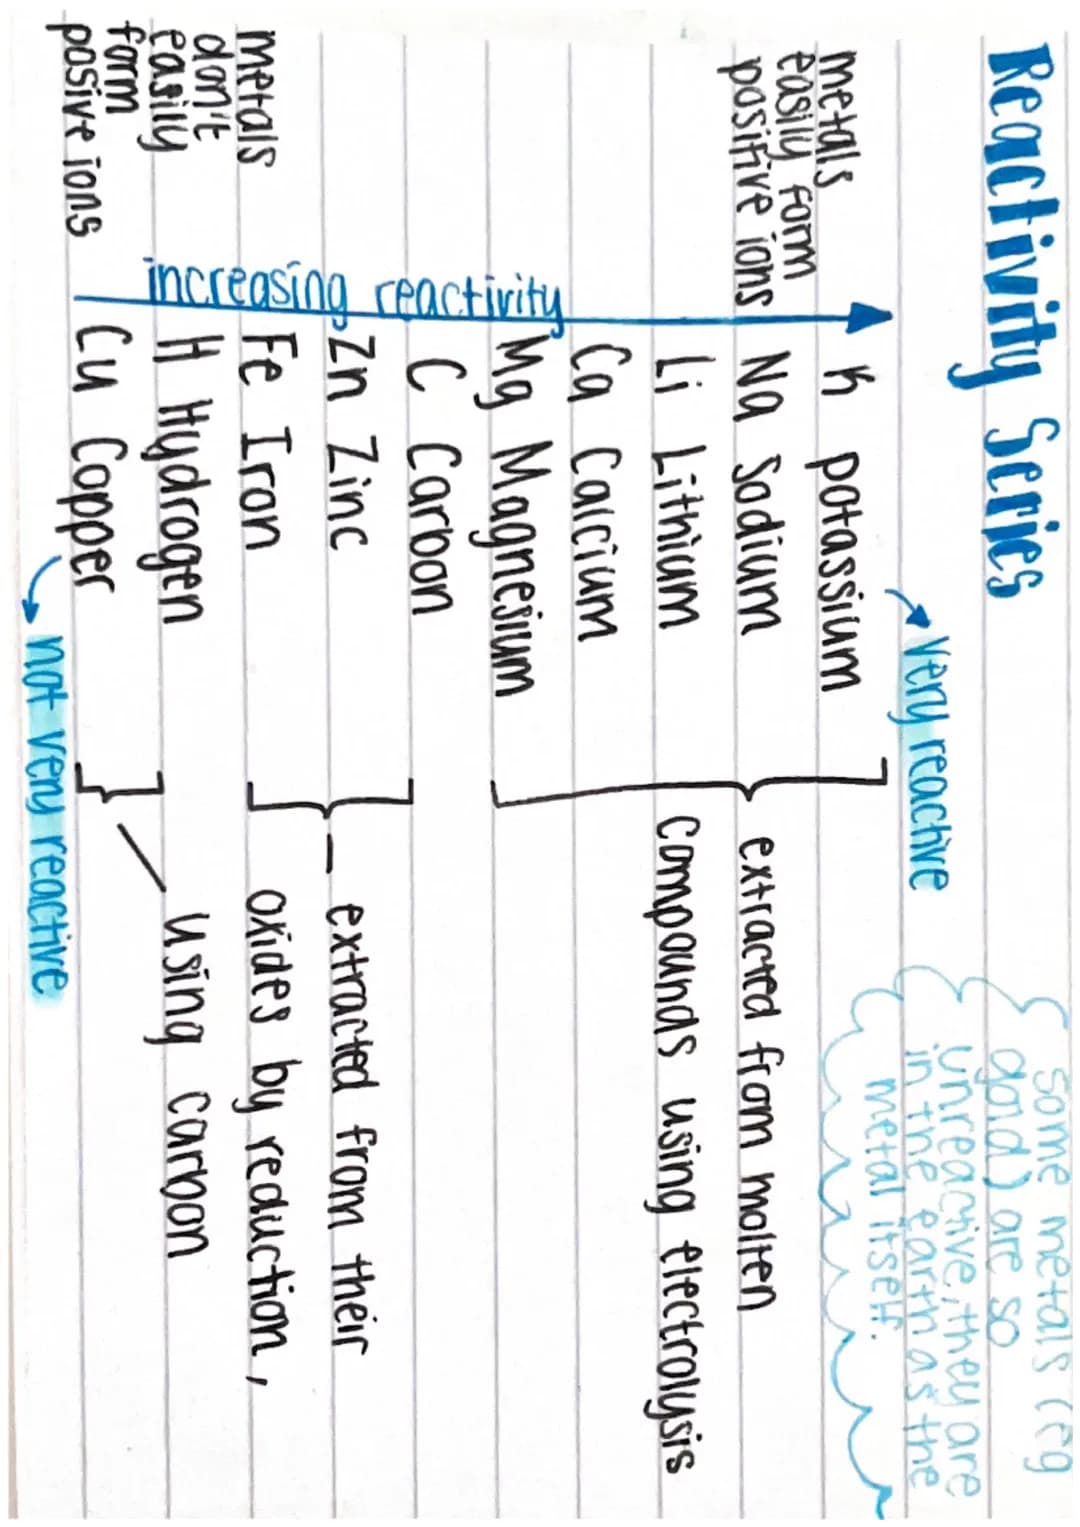 Reactivity Series
some metals (eg
gold) are so
unreactive, they are
in the earth as the
metal itself.
very reactive
metals
easily form
positive ions
increasing reactivity
K potassium
Na Sodium
Li Lithium
Ca Calcium
Mg Magnesium
C Carbon
Zn Zinc
Fe Iron
H Hydrogen
Cu Copper
extracted from molten
compounds using electrolysis
– extracted from their
oxides by reduction,
using carbon
metals
don't
easily
form
posive ions
not very reactive